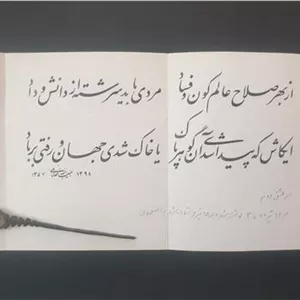 از بهر صلاح عالم کون و فساد
مردی باید سرشته از دانش و داد
ایکاش که پیدا شدی آن گوهر پاک
یا خاک شدی جهان و رفتی بر باد